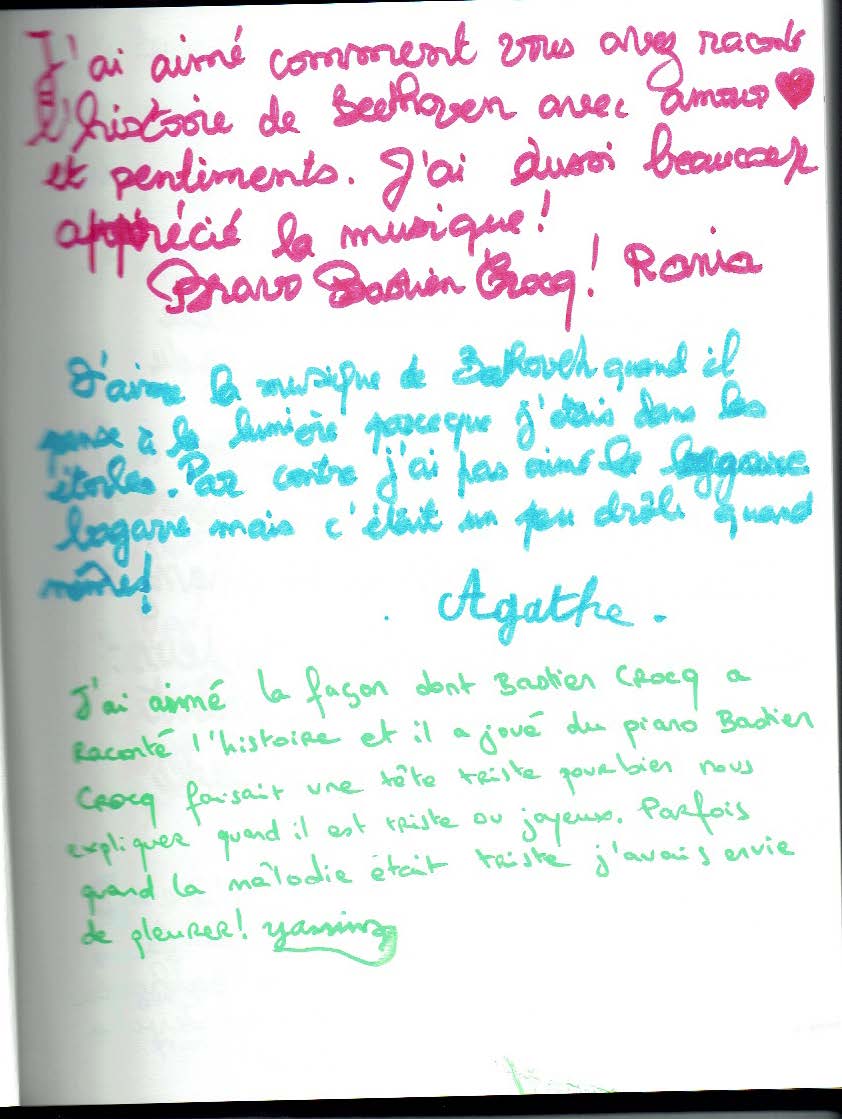 J'ai aimé comment vous avez raconté
l'histoire de Beethoven avec amour ♥
et sentiments. J'ai aussi beaucoup
apprécié la musique!
Bravo Bastien Crocq! Rania
J'aime la musique de Bethoven quand il
pense à la lumière parce que j'étais dans les
étoiles. Par contre j'ai pas aimé la
bagarre mais c'était un peu drôle quand
même!
Agathe.
J'ai aimé la façon dont Bastien CROCQ a
Raconté l'histoire et il a joué du piano Bastien
CROCQ faisait une tête triste pour bien nous
expliquer quand il est triste ou joyeux. Parfois
quand la mélodie était triste j'avais envie
de pleurer!